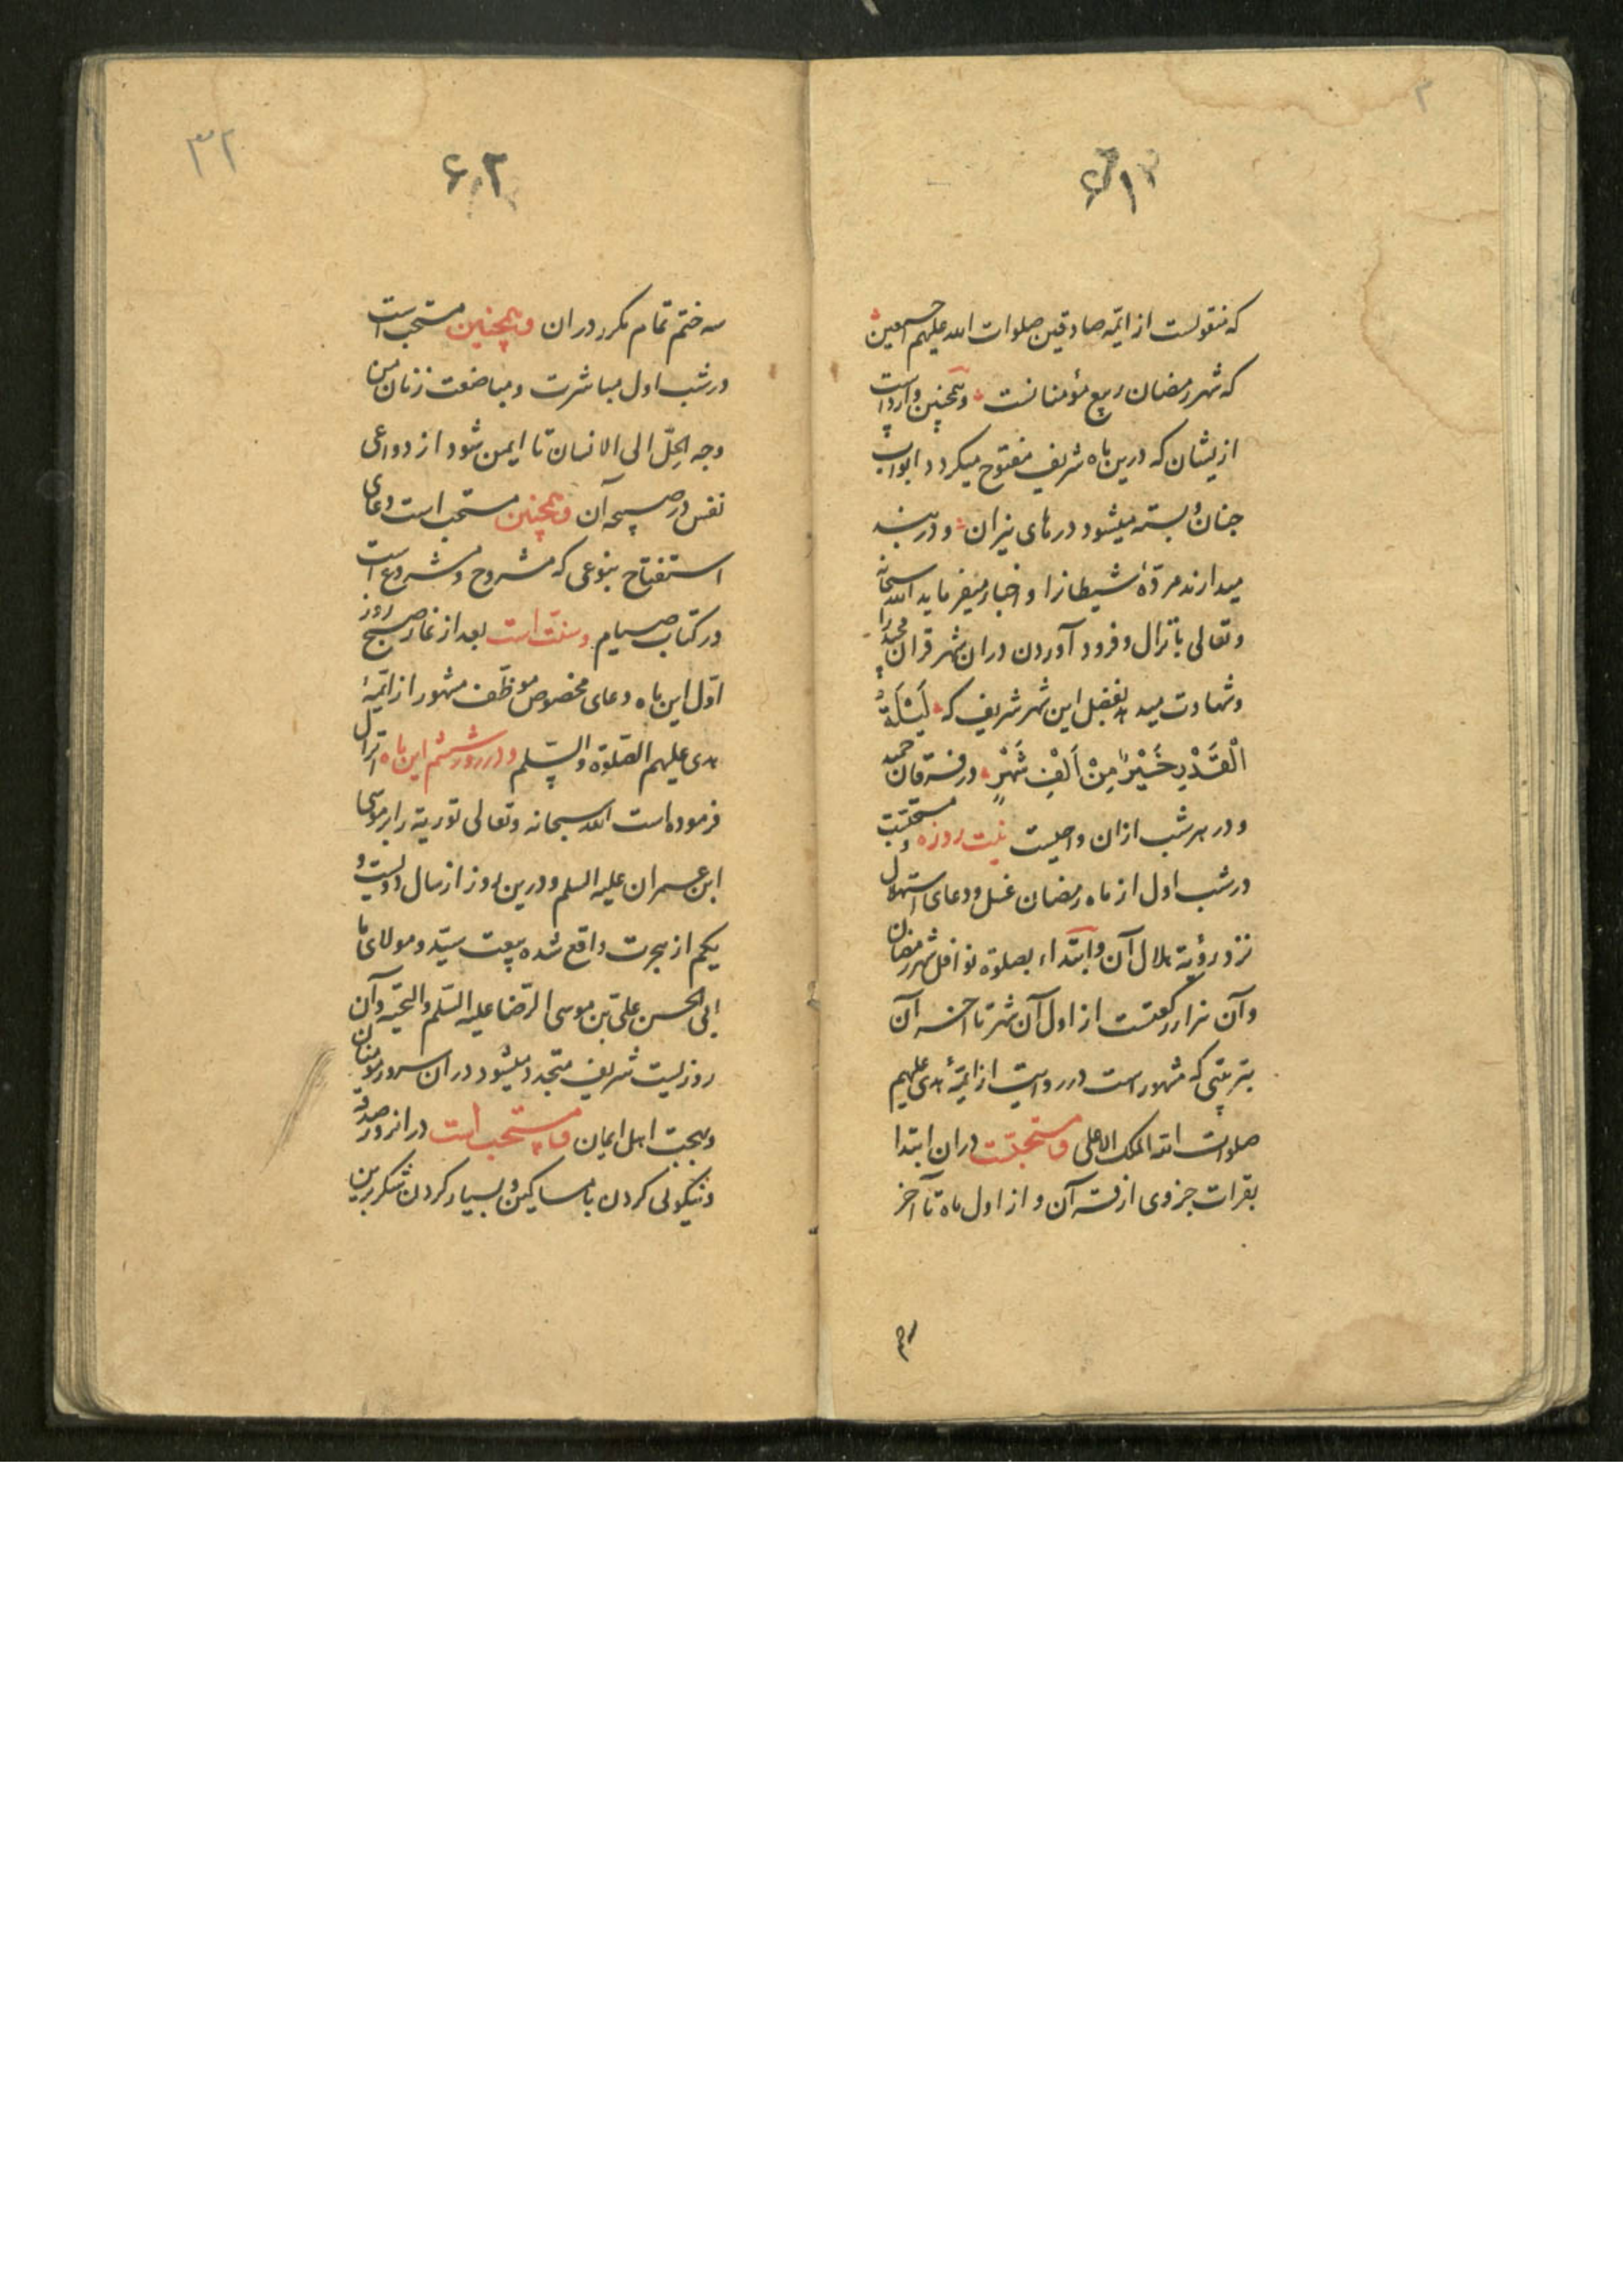 ۶۱
که منقولست از ائمه صادقین صلوات الله علیهم اجمعین
که شهر رمضان ربیع مؤمنانست و همچنین وارد است
ازیشان که درین ماه شریف مفتوح میگردد ابواب
جنان و بسته میشود درهای نیران و در بند
میدارند مردهٔ شیطانرا و اخبار میفرماید الله سبحانه
و تعالی بانزال و فرود آوردن در ان شهر قران مجید را
و شهادت میدهد بفضل این شهر شریف که لَیْلَةُ
الْقَدْرِ خَیْرٌ مِنْ اَلْفِ شَهْرٍ در فرقان حمید
و در هر شب ازان واجبست نیت روزه و مستحبست
در شب اول از ماه رمضان غسل و دعای استهلال
نزد رؤیة هلال آن و ابتداء بصلوة نوافل شهر رمضان
و آن هزار رکعتست از اول آن شهر تا اخر آن
بترتیبی که مشهور است در روایت از ائمهٔ هدی علیهم
صلوات الله الملک الاعلی و مستحبست دران ابتدا
بقرات جزوی از قرآن و از اول ماه تا آخر
۳۲
۶۲
سه ختم تمام مکرر دران و همچنین مستحب است
در شب اول مباشرت و مباضعت زنان من
وجه الحِلّ الی الانسان تا ایمن شود از دواعی
نفس در صبیحه آن و همچنین مستحب است دعای
استفتاح بنوعی که مشروح و مشروع است
در کتاب صیام و سنت است بعد از نماز صبح روز
اوّل این ماه دعای مخصوص موظف مشهور از ائمهٔ
هدی علیهم الصّلوة و السّلم و در روز ششم این ماه انزال
فرموده است الله سبحانه و تعالی توریة را بر موسی
ابن عمران علیه السلم و درین روز از سال دویست و
یکم از هجرت واقع شده بیعت سیّد و مولای ما
ابی الحسن علیّ بن موسی الرّضا علیه السّلم و التحیّه و آن
روزیست شریف متجدد میشود دران سرور مؤمنان
و بهجت اهل ایمان و مستحب است در انروز صدقه
و نیکوئی کردن با مساکین و بسیار کردن شکر برین